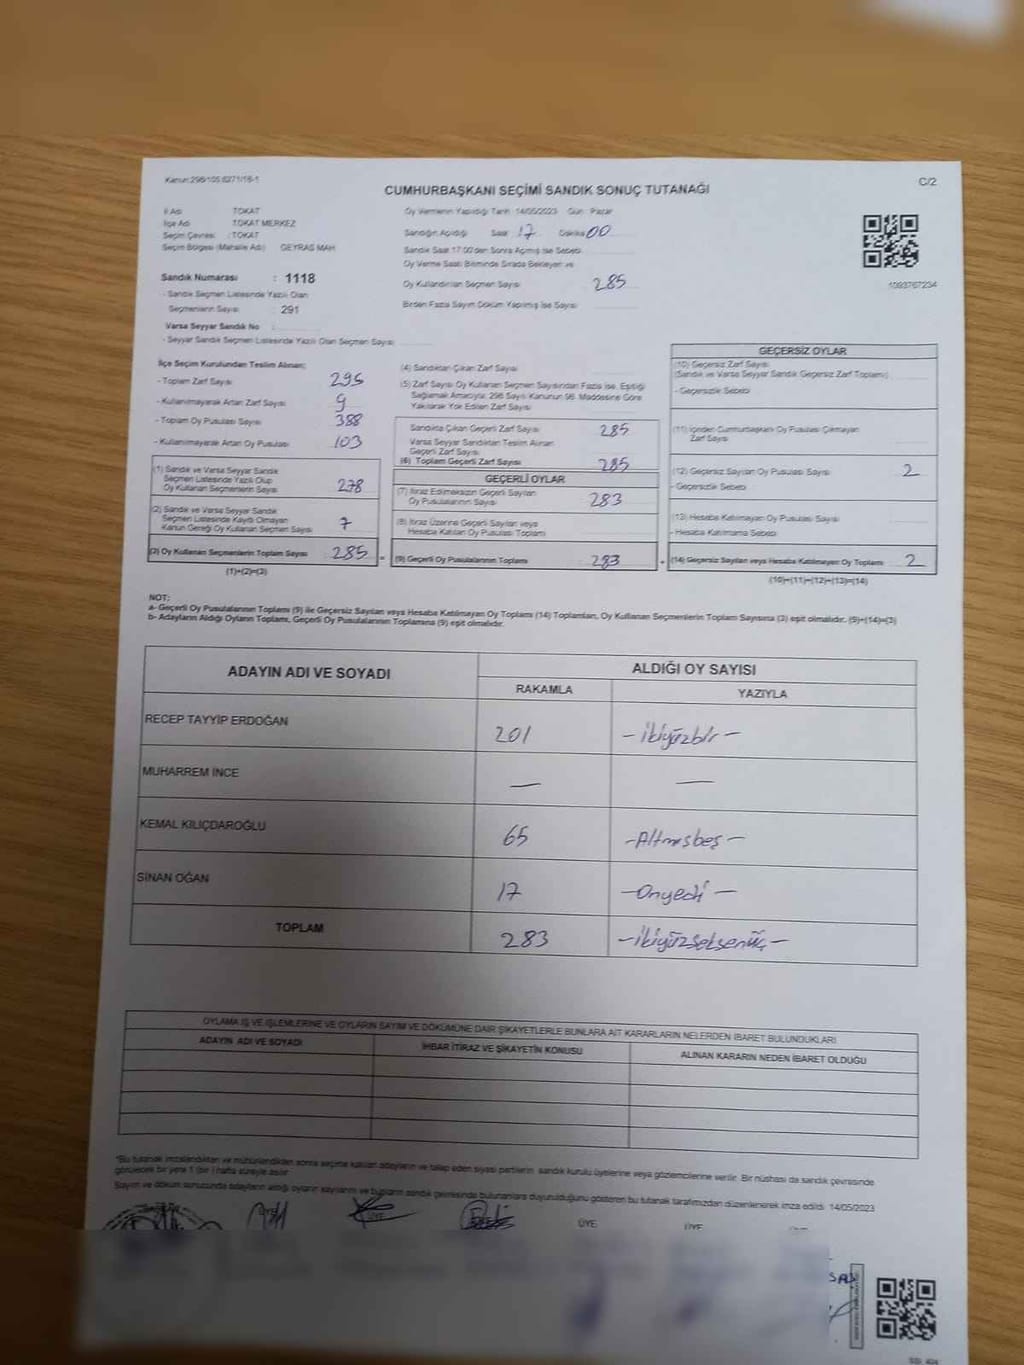 Kanun:298/105 6271/16-1
CUMHURBAŞKANI SEÇİMİ SANDIK SONUÇ TUTANAĞI
C/2
İl Adı TOKAT
İlçe Adı TOKAT MERKEZ
Seçim Çevresi : TOKAT
Seçim Bölgesi (Mahalle Adı) GEYRAS MAH
Oy Vermenin Yapıldığı Tarih 14/05/2023 Gün Pazar
Sandığın Açıldığı Saat 17 Dakika 00
Sandık Saat 17:00'den Sonra Açılmış İse Sebebi
Oy Verme Saati Bitiminde Sırada Bekleyen ve
Oy Kullandırılan Seçmen Sayısı 285
Birden Fazla Sayım Döküm Yapılmış İse Sayısı
1093767234
Sandık Numarası : 1118
- Sandık Seçmen Listesinde Yazılı Olan
Seçmenlerin Sayısı : 291
Varsa Seyyar Sandık No :
- Seyyar Sandık Seçmen Listesinde Yazılı Olan Seçmen Sayısı
İlçe Seçim Kurulundan Teslim Alınan;
- Toplam Zarf Sayısı 295
- Kullanılmayarak Artan Zarf Sayısı 9
- Toplam Oy Pusulası Sayısı 388
- Kullanılmayarak Artan Oy Pusulası 103
(1) Sandık ve Varsa Seyyar Sandık
Seçmen Listesinde Yazılı Olup
Oy Kullanan Seçmenlerin Sayısı 278
(2) Sandık ve Varsa Seyyar Sandık
Seçmen Listesinde Kayıtlı Olmayan
Kanun Gereği Oy Kullanan Seçmen Sayısı 7
(3) Oy Kullanan Seçmenlerin Toplam Sayısı 285 =
(1)+(2)=(3)
(4) Sandıktan Çıkan Zarf Sayısı
(5) Zarf Sayısı Oy Kullanan Seçmen Sayısından Fazla İse, Eşitliği
Sağlamak Amacıyla; 298 Sayılı Kanunun 98. Maddesine Göre
Yakılarak Yok Edilen Zarf Sayısı
Sandıkta Çıkan Geçerli Zarf Sayısı 285
Varsa Seyyar Sandıktan Teslim Alınan
Geçerli Zarf Sayısı
(6) Toplam Geçerli Zarf Sayısı 285
GEÇERLİ OYLAR
(7) İtiraz Edilmeksizin Geçerli Sayılan
Oy Pusulalarının Sayısı 283
(8) İtiraz Üzerine Geçerli Sayılan veya
Hesaba Katılan Oy Pusulası Toplamı
(9) Geçerli Oy Pusulalarının Toplamı 283 +
GEÇERSİZ OYLAR
(10) Geçersiz Zarf Sayısı
(Sandık ve Varsa Seyyar Sandık Geçersiz Zarf Toplamı)
- Geçersizlik Sebebi
(11) İçinden Cumhurbaşkanı Oy Pusulası Çıkmayan
Zarf Sayısı
(12) Geçersiz Sayılan Oy Pusulası Sayısı 2
- Geçersizlik Sebebi
(13) Hesaba Katılmayan Oy Pusulası Sayısı
- Hesaba Katılmama Sebebi
(14) Geçersiz Sayılan veya Hesaba Katılmayan Oy Toplamı 2
(10)+(11)+(12)+(13)=(14)
NOT:
a- Geçerli Oy Pusulalarının Toplamı (9) ile Geçersiz Sayılan veya Hesaba Katılmayan Oy Toplamı (14) Toplamları, Oy Kullanan Seçmenlerin Toplam Sayısına (3) eşit olmalıdır. (9)+(14)=(3)
b- Adayların Aldığı Oyların Toplamı, Geçerli Oy Pusulalarının Toplamına (9) eşit olmalıdır.
ADAYIN ADI VE SOYADI ALDIĞI OY SAYISI
RAKAMLA YAZIYLA
RECEP TAYYİP ERDOĞAN 201 - ikiyüzbir -
MUHARREM İNCE — —
KEMAL KILIÇDAROĞLU 65 - Altmışbeş -
SİNAN OĞAN 17 - Onyedi -
TOPLAM 283 - ikiyüzseksenüç -
OYLAMA İŞ VE İŞLEMLERİNE VE OYLARIN SAYIM VE DÖKÜMÜNE DAİR ŞİKAYETLERLE BUNLARA AİT KARARLARIN NELERDEN İBARET BULUNDUKLARI
ADAYIN ADI VE SOYADI İHBAR İTİRAZ VE ŞİKAYETİN KONUSU ALINAN KARARIN NEDEN İBARET OLDUĞU
*Bu tutanak imzalandıktan ve mühürlendikten sonra seçime katılan adayların ve talep eden siyasi partilerin sandık kurulu üyelerine veya gözlemcilerine verilir. Bir nüshası da sandık çevresinde
görülecek bir yere 1 (bir) hafta süreyle asılır.
Sayım ve döküm sonucunda adayların aldığı oyların sayılarını ve bunların sandık çevresinde bulunanlara duyurulduğunu gösteren bu tutanak tarafımızdan düzenlenerek imza edildi. 14/05/2023
ÜYE ÜYE ÜYE